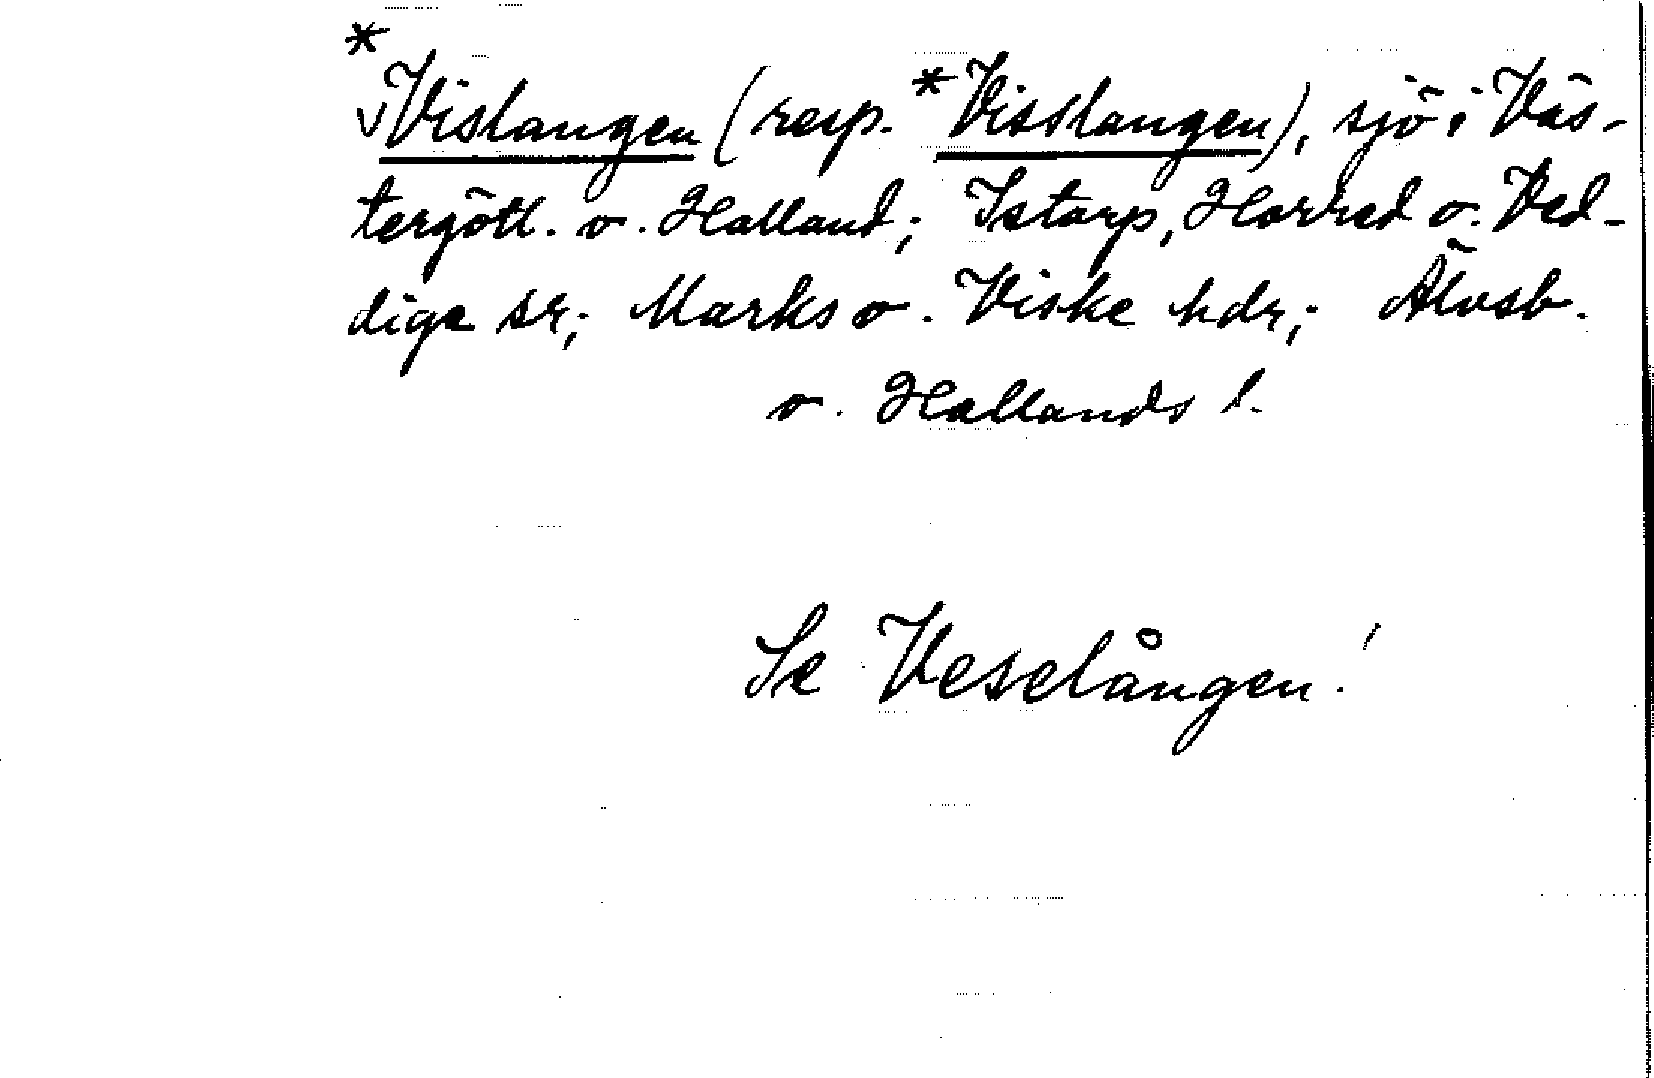 *Vislangen (resp. *Visslangen), sjö i Väs-
tergötl. o. Halland; Istorp, Horred o. Ved-
dige sr; Marks o. Viske hdr; Älvsb.
o. Hallands l.
Se Veselången!